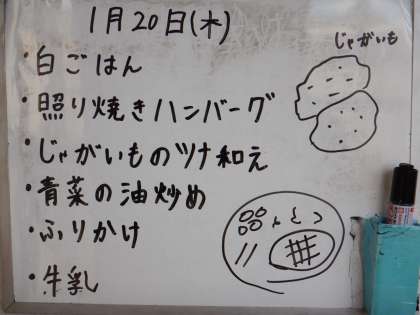 1月20日(木)
・白ごはん
・照り焼きハンバーグ
・じゃがいものツナ和え
・青菜の油炒め
・ふりかけ
・牛乳
じゃがいも